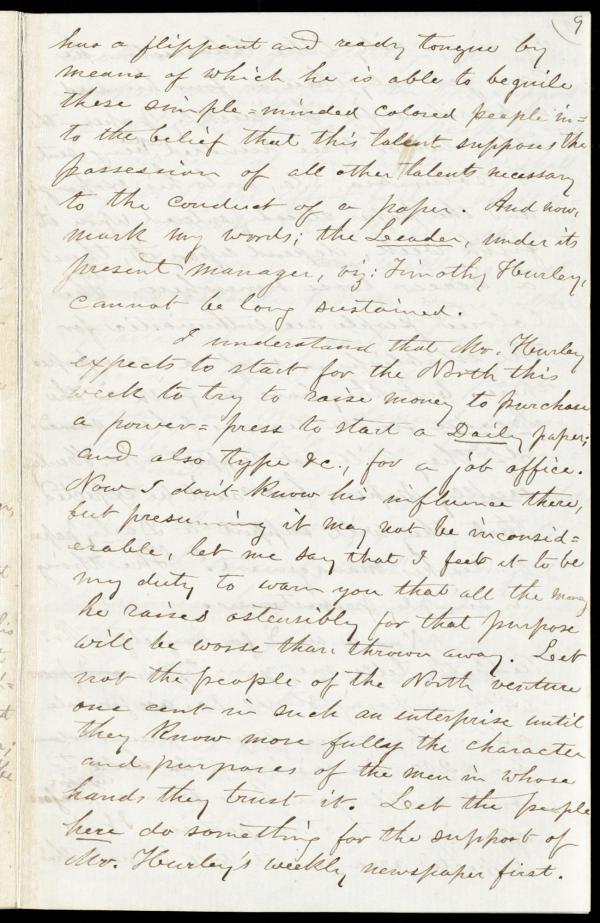 9
has a flippant and ready tongue by
means of which he is able to beguile
these simple=minded colored people in=
to the belief that this talent supposes the
possession of all other talents necessary
to the conduct of a paper. And now,
mark my words; the Leader, under its
present manager, viz: Timothy Hurley,
cannot be long sustained.
I understand that Mr. Hurley
expects to start for the North this
week to try to raise money to purchase
a power=press to start a Daily paper;
and also type &c., for a job office.
Now I don't know his influence there,
but presuming it may not be inconsid=
erable, let me say that I feel it to be
my duty to warn you that all the money
he raises ostensibly for that purpose
will be worse than thrown away. Let
not the people of the North venture
one cent in such an enterprise until
they know more fully the character
and purposes of the men in whose
hands they trust it. Let the people
here do something for the support of
Mr. Hurley's weekly newspaper first.